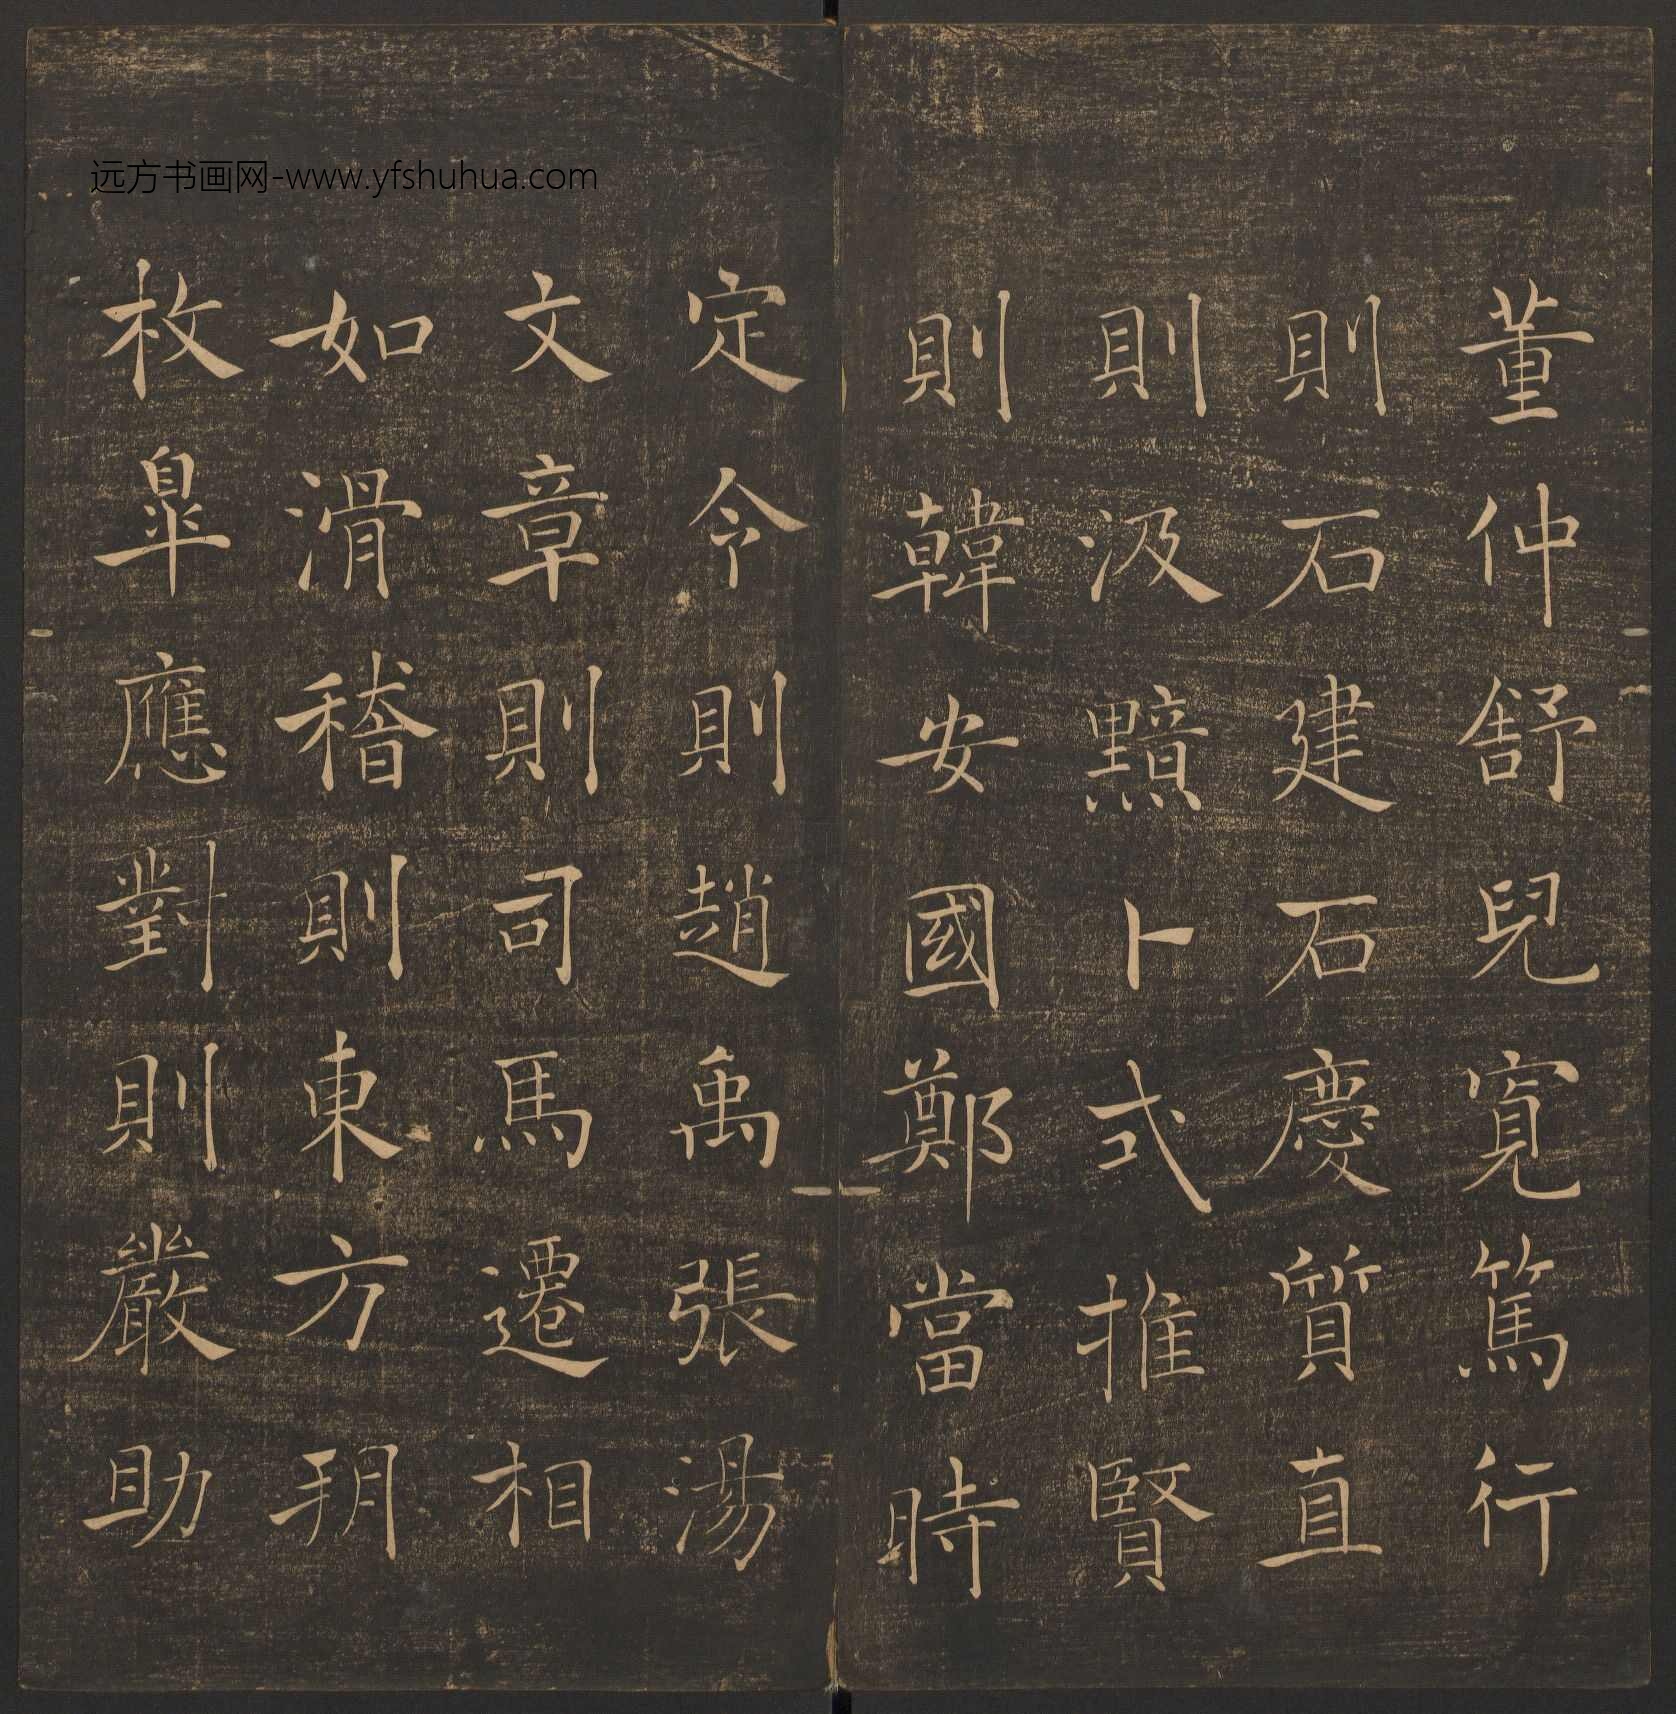 远方书画网-www.yfshuhua.com
董仲舒兒寬篤行
則石建石慶質直
則汲黯卜式推賢
則韓安國鄭當時
定令則趙禹張湯
文章則司馬遷相
如滑稽則東方玥
枚皐應對則嚴助